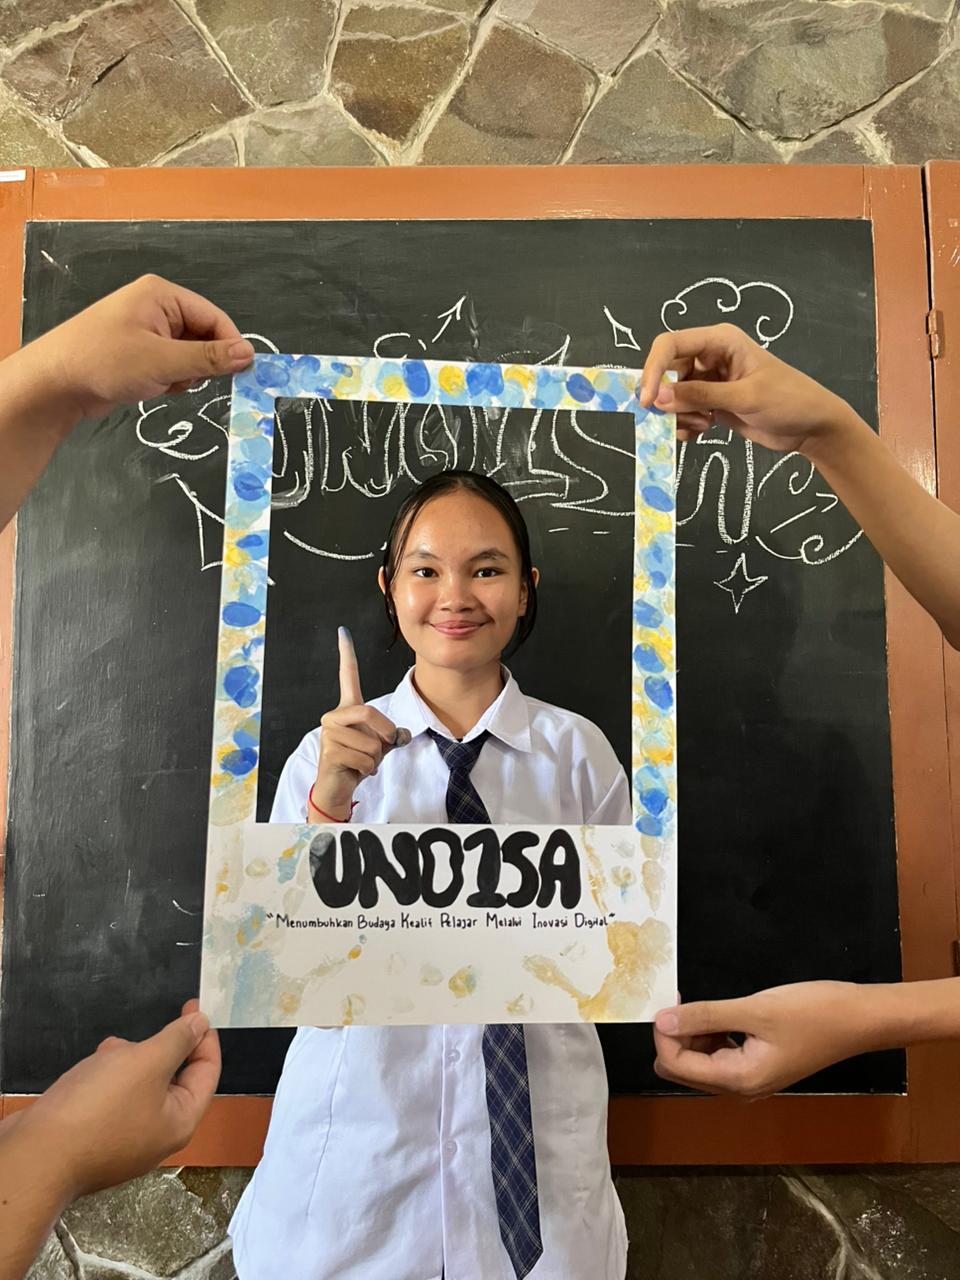 UNDISA
UND1SA
"Menumbuhkan Budaya Keatif Pelajar Melalui Inovasi Digital"